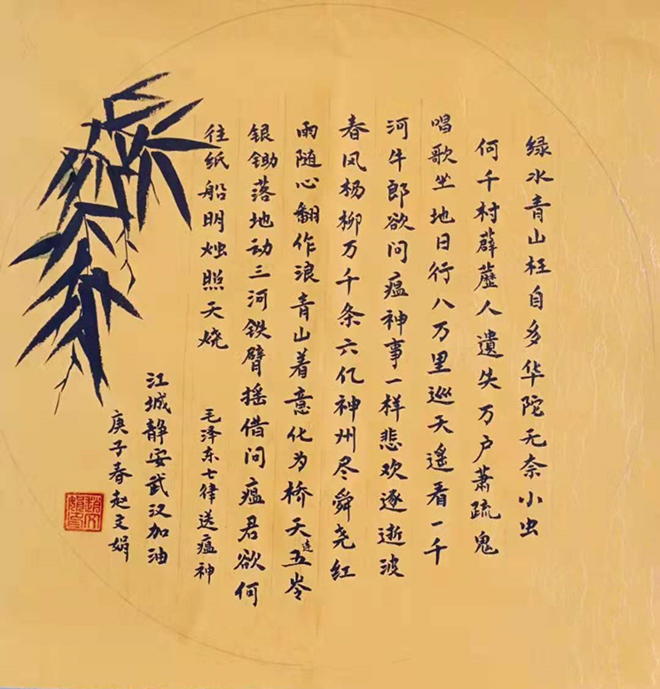 绿水青山枉自多华陀无奈小虫
何千村薜藶人遗失万户萧疏鬼
唱歌坐地日行八万里巡天遥看一千
河牛郎欲问瘟神事一样悲欢逐逝波
春风杨柳万千条六亿神州尽舜尧红
雨随心翻作浪青山着意化为桥天连五岺
银锄落地动三河铁臂摇借问瘟君欲何
往纸船明烛照天烧
毛泽东七律送瘟神
江城静安武汉加油
庚子春赵文娟